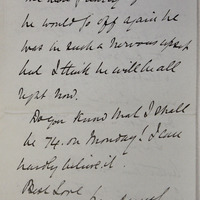 he would go off again he
was in such a nervous upset
but I think he will be all
right now.
Do you know that I shall
be 74 on Monday! I can
hardly believe it.
Best Love